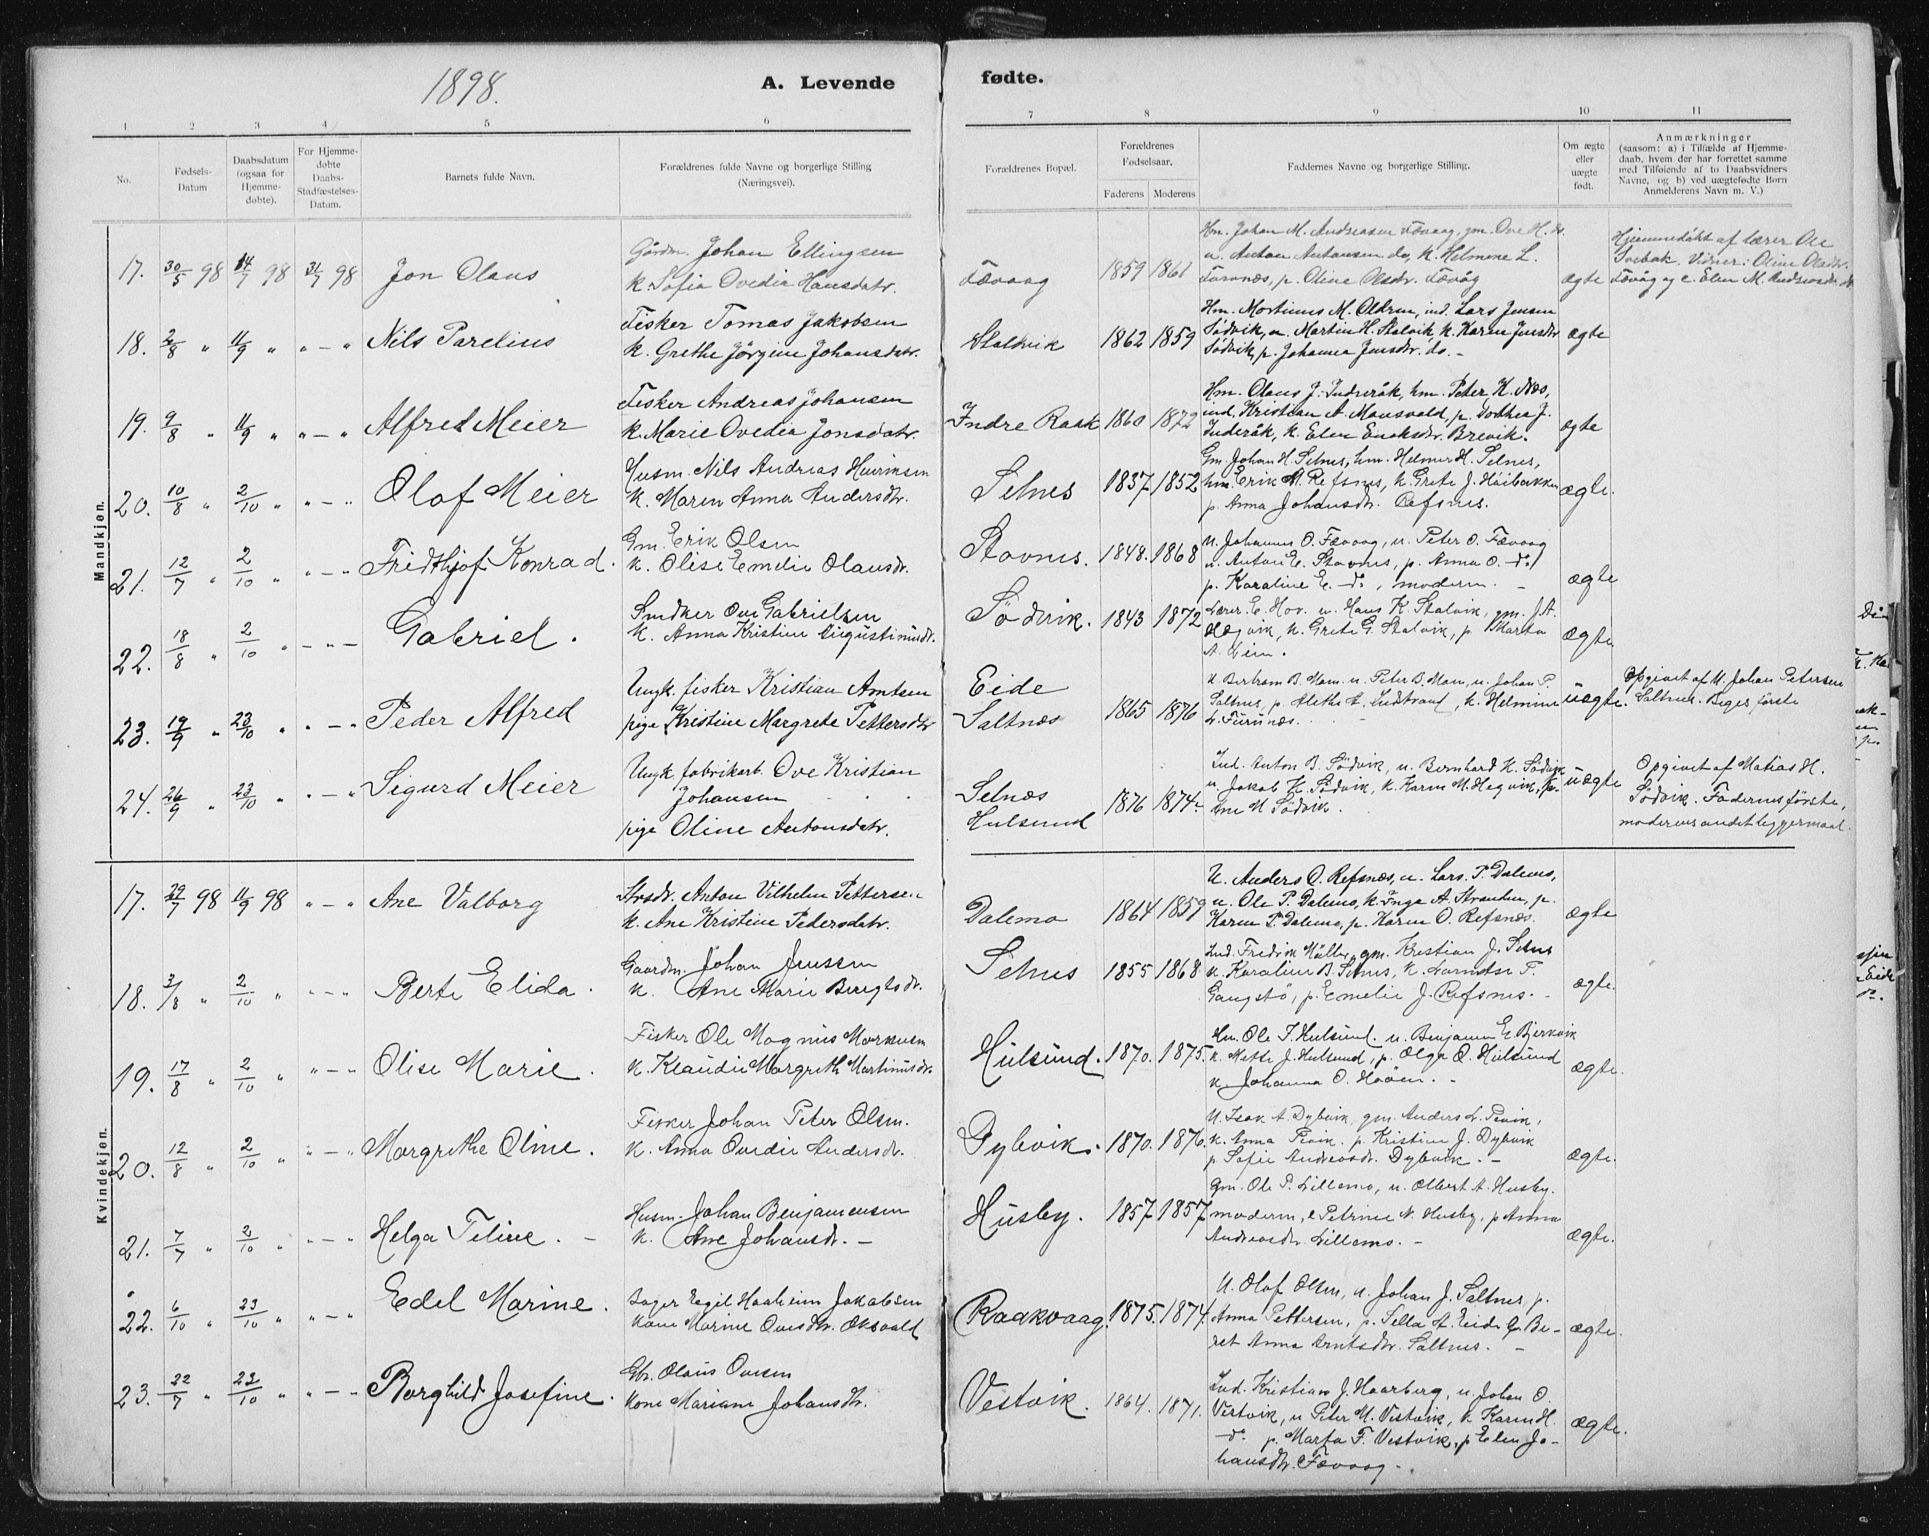 1898.
A. Levende fødte.
1 2 3 4 5 6 7 8 9 10 11
No.
Fødsels-
Datum
Daabsdatum
(ogsaa for
Hjemme-
døbte).
For Hjemme-
døbte
Daabs-
Stadfæstelses-
Datum.
Barnets fulde Navn.
Forældrenes fulde Navne og borgerlige Stilling
(Næringsvei).
Forældrenes Bopæl.
Forældrenes
Fødselsaar.
Faderens Moderens
Faddernes Navne og borgerlige Stilling.
Om ægte
eller
uægte
født.
Anmærkninger
(saasom: a) i Tilfælde af Hjemme-
daab, hvem der har forrettet samme
med Tilføiende af to Daabsvidners
Navne, og b) ved uægtefødte Børn
Anmelderens Navn m. V.)
Mandkjøn.
17. 30/5 98 14/7 98 31/7 98 Jon Olaus
Gårdm. Johan Ellingsen
k. Sofia Ovedia Hansdatr.
Fævaag 1859 1861
Hm. Johan M. Andreasen Fævaag, gm. Ove H. do.
u. Anton Antonsen do, k. Helmine L.
Furunæs, p. Oline Olsdr. Fævåg
ægte
Hjemmedöbt af lærer Ole
Vidner: Oline Olsdtr.
Fævåg og e. Elen M. Andreasdtr. do.
18. 2/8 " 11/9 " " - " Nils Parelius
Fisker Tomas Jakobsen
k. Grethe Jörgine Johansdatr.
Stalvik 1862 1859
Hm. Mortinus M. Oldren, ind. Lars Jensen
Södvik, u. Martin H. Stalvik, k. Karen Jensdr.
Södvik, p. Johanna Jensdr. do. -
ægte
19. 9/8 " 11/9 " " - " Alfred Meier
Fisker Andreas Johansen
k. Marie Ovedia Jonsdatr.
Indre Raak 1860 1872
Hm. Olaus J. Inderåk, hm. Peter K. Næs,
ind. Kristian A. Mausvald, p. Dorthea J.
Inderåk, k. Elen Enoksdr. Brevik.
ægte
20. 10/8 " 2/10 " - " Olaf Meier
Husm. Nils Andreas Henriksen
k. Maren Anna Andersdr.
Selnes 1837 1852
Gm. Johan H. Selnes, hm. Helmer H. Selnes,
hm. Erik A. Refsnes, k. Grete J. Haibakken
p. Anna Johansdr. Refsnes.
ægte.
21. 12/7 " 2/10 " " - " Fridthjof Konrad.
Gm. Erik Olsen
k. Olise Emilie Olausdr.
Stavnes. 1848. 1868
u. Johannes O. Fævaag, u. Peter O. Fævaag
u. Anton E. Stavnes, p. Anna O. do
p. Karoline E. do, modern. -
ægte
22. 18/8 " 2/10 " - " - " Gabriel.
Smdker Ove Gabrielsen
k. Anna Kristine Augustinusdr.
Södvik. 1843 1872
Lærer E. Hov. u. Hans K. Stalvik, gm. J. A.
Hegvik, k. Grete G. Stalvik, p. Marta
A. Liim.
ægte
23. 19/9 " 23/10 " " - " Peder Alfred
Ungk. fisker Kristian Arntsen
pige Kristine Margrete Pettersdtr
Eide
Saltnæs 1865 1876
u. Bertram B. Mom. u. Peter B. Mom, u. Johan P.
Saltnes, p. Alethe A. Sundtrand, k. Helmine
L. Furunæs.
uægte.
Opgivet af U. Johan Petersen
Saltnes. Beges første
24. 26/9 " 23/10 " " - " Sigurd Meier
Ungk. fabrikarb. Ove Kristian
Johansen
pige Oline Antonsdatr.
Selnæs
Hulsund 1876 1874
Ind. Anton B. Södvik, u. Bernhard K. Södvik
u. Jakob H. Södvik, k. Karen M. Hegvik, K.
line M. Södvik.
uægte
Opgivet af Matias H.
Södvik. Faderens første,
moderens andet leggermaal.
Kvindekjøn.
17. 29/7 98 11/9 98 " - " Ane Valborg
Arbdr. Anton Vilhelm Pettersen
k. Ane Kristine Pedersdatr.
Dalemo 1864 1859
U. Anders O. Refsnæs, u. Lars P. Dalemo,
u. Ole P. Dalemo, k. Inga A. Stranden, p.
Karen P. Dalemo, p. Karen O. Refsnæs.
ægte
18. 3/8 " 2/10 " " - " Berte Elida.
Gaardm. Johan Jensen
k. Ane Marie Bengtsdr.
Selnes 1855 1868
Ind. Fredrik Müller, gm. Kristian J. Selnes
k. Karoline B. Selnes, k. F.
Gangstö, p. Emelie J. Refsnes. -
ægte.
19. 17/8 " 2/10 " " - " Olise Marie.
Fisker Ole Magnus Markusen
k. Klaudie Margreth Martinusdr.
Hulsund. 1870. 1875.
Hm. Ole T. Hulsund. u. Benjamin E. Bjerkvik
k. Mette J. Hulsund, p. Olga O. Hulsund
k. Johanna O. Haöen. -
ægte.
20. 12/8 " 2/10 " " - " Margrethe Oline.
Fisker Johan Peter Olsen.
k. Anna Ovedie Andersdr.
Dybvik. 1870. 1876.
U. Isak A. Dybvik, gm. Anders L. Pevik,
k. Anna Pevik. p. Kristine J. Dybvik
p. Sofie Andreasdr. Dybvik. -
ægte.
21. 7/7 " 2/10 " " - " Helga Feline. -
Husm. Johan Benjaminsen
k. Ane Johansdr. -
Husby. 1857 1857
gm. Ole P. Lillemo, u. Albert A. Husby.
modern, e. Petrine N. Husby, p. Anna
Andreasdr. Lillemo. -
ægte.
22. 6/10 " 23/10 " " - " Edel Marine.
Bager Egil Haaheim Jakobsen
kone Marine Ovesdtr. Oksvald
Raakvaag. 1875. 1874.
U. Olaf Olsen, u. Johan J. Saltnes, p.
Anna Pettersen, p. Sella A. Eide & Be-
ret Anna Arntsdr. Saltnes. -
ægte.
23. 22/7 " 23/10 " " - " Borghild Josefine.
Gbr. Olaus Ovesen
kone Mariane Johansdtr.
Vestvik. 1864. 1871.
Ind. Kristian J. Haarberg, u. Johan O.
Vestvik, u. Peter M. Vestvik, k. Karen H.
- do. p. Marta F. Vestvik, p. Elen Jo-
hansdtr. Fævaag -
ægte.